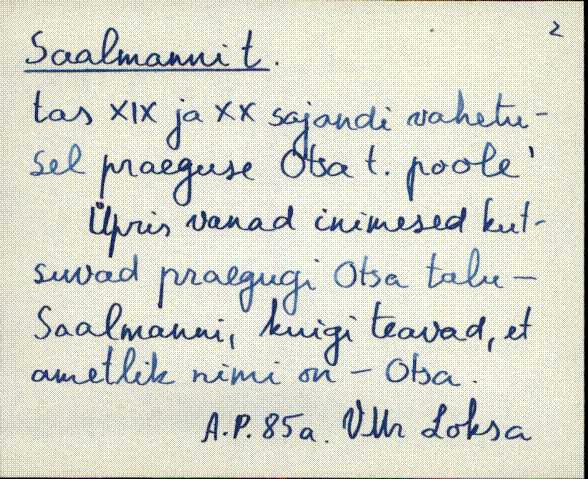 2
Saalmanni t.
tas XIX ja XX sajandi vahetu-
sel praeguse Otsa t. poole'
Üpris vanad inimesed kut-
suvad praegugi Otsa talu –
Saalmanni, kuigi teavad, et
ametlik nimi on – Otsa.
A.P. 85a. VMr Loksa